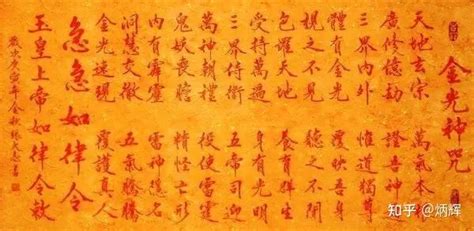 金光神咒
天地玄宗 萬氣本根
廣修億劫 證吾神通
惟道獨尊
體有金光 覆映吾身
視之不見 聽之不聞
包羅天地 養育群生
受持萬遍 身有光明
三界侍衛 五帝司迎
萬神朝禮 役使雷霆
鬼妖喪膽 精怪亡形
內有霹靂 雷神隱名
洞慧交徹 五氣騰騰
金光速現 覆護真人
急急如律令
玉皇上帝如律令敕
知乎 @炳辉